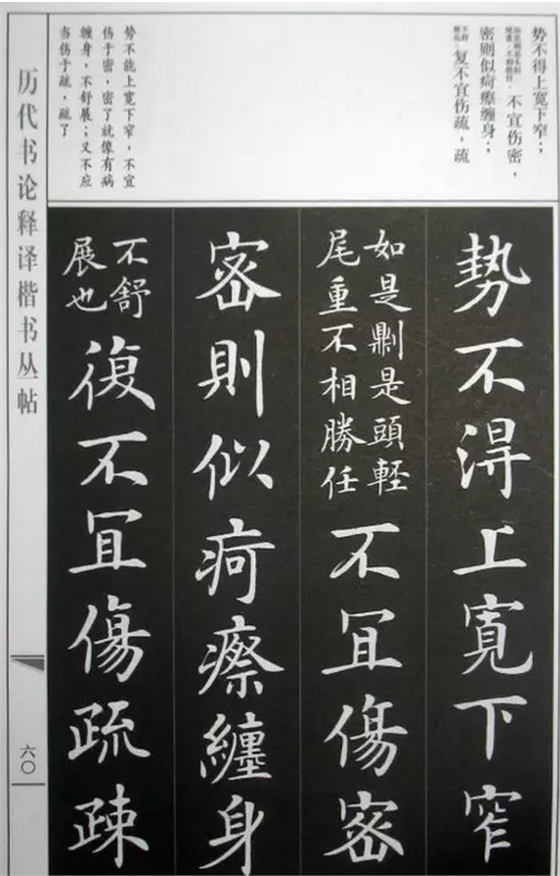 势不得上宽下窄；
如是则是头轻
尾重，不相胜任。
不宜伤密，
密则似疴瘵缠身；
不舒
展也。
复不宜伤疏，疏
势不能上宽下窄，不宜
伤于密，密了就像有病
缠身，不舒展；又不应
当伤于疏，疏了
勢不得上寬下窄
如是則是頭輕
尾重不相勝任
不宜傷密
密則似疴瘵纏身
不舒
展也
復不宜傷疏疎
历代书论释译楷书丛帖
六〇